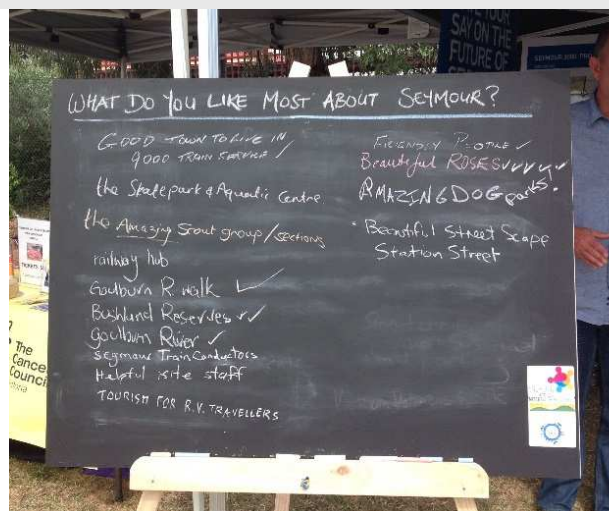 SAY ON THE
FUTURE OF
WHAT DO YOU LIKE MOST ABOUT SEYMOUR?
GOOD TOWN TO LIVE IN
GOOD TRAIN SERVICE ✓
the Skatepark & Aquatic Centre
the Amazing Scout group/sections
railway hub
Goulburn R. walk ✓
Bushland Reserves ✓✓
Goulburn River ✓
Seymour Train Conductors
Helpful site staff
TOURISM FOR R.V. TRAVELLERS
FRIENDLY PEOPLE ✓
Beautiful ROSES ✓✓✓✓✓
AMAZING DOG parks!
• Beautiful Street Scape
Station Street
The
Cancer
Council